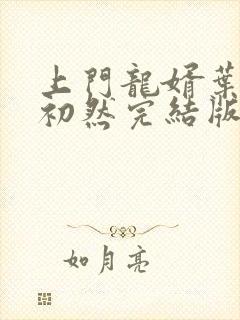 上門龍婿葉
初然完結版
如月亮